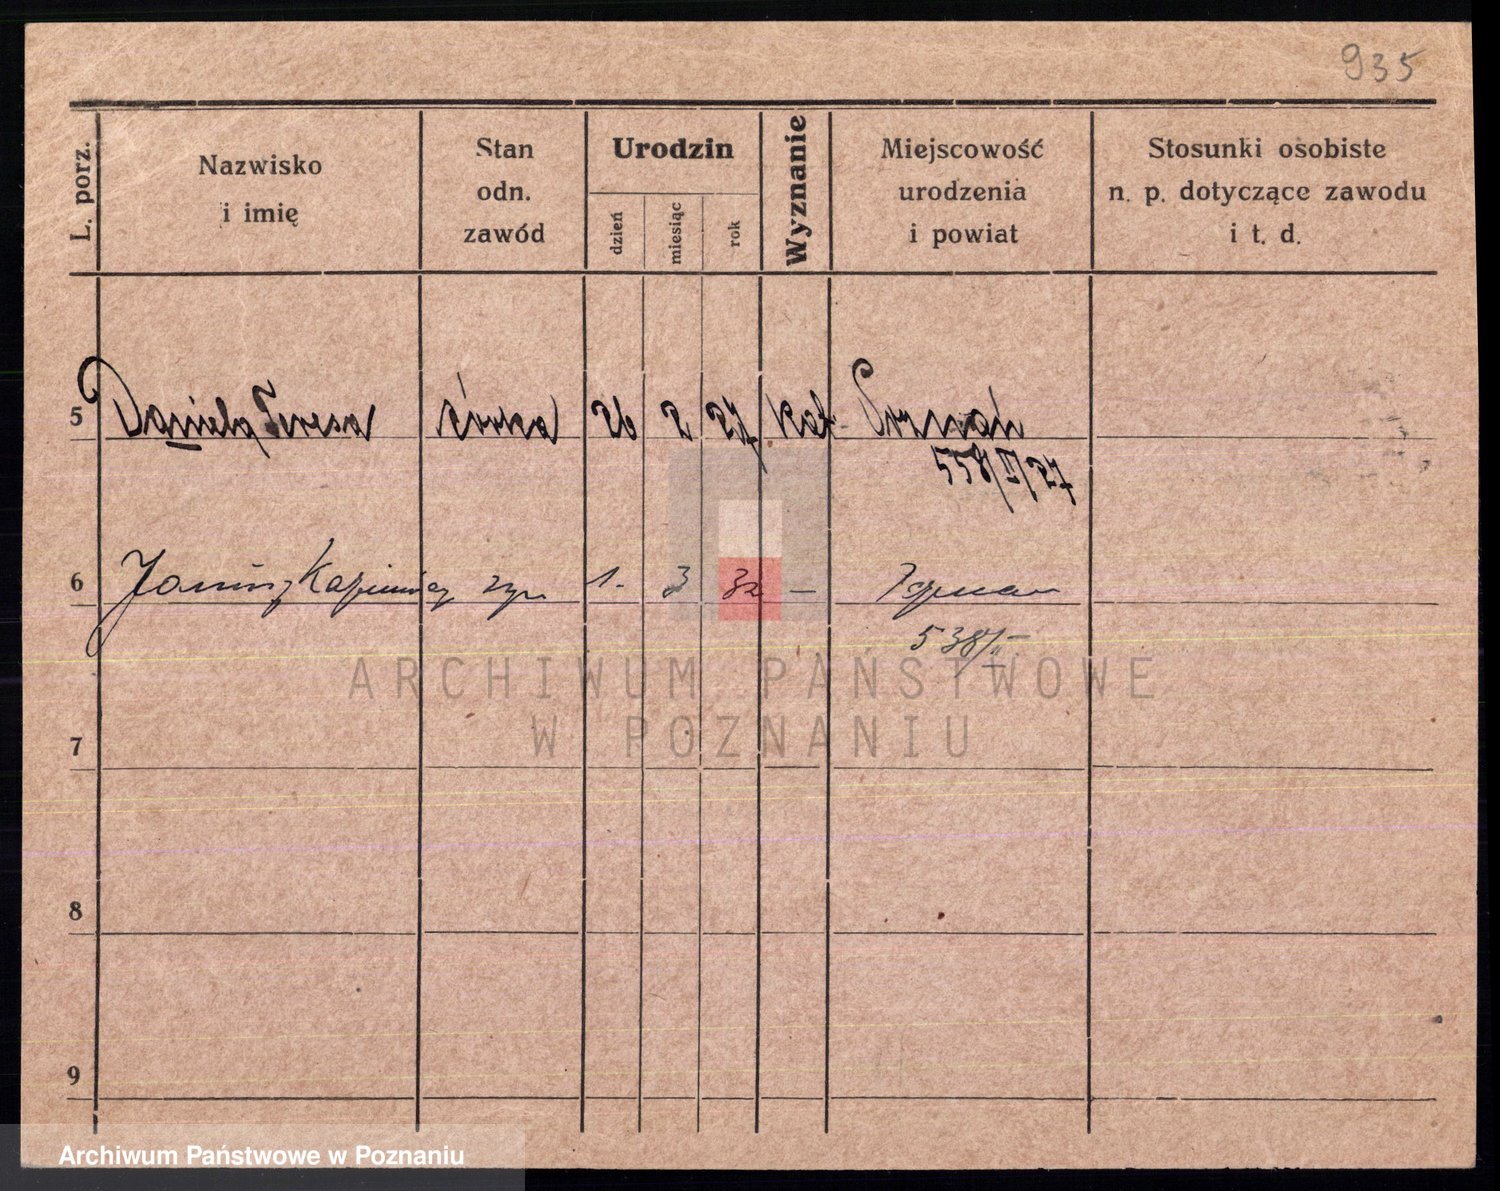 935
L. porz.
Nazwisko
i imię
Stan
odn.
zawód
Urodzin
dzień
miesiąc
rok
Wyznanie
Miejscowość
urodzenia
i powiat
Stosunki osobiste
n. p. dotyczące zawodu
i t. d.
5 Daniela Teresa córka 26 2 27 kat. Poznań
558/II/27
6 Janusz Kazimierz syn 1. 3 32 — Poznań
538/II
7
8
9
ARCHIWUM PAŃSTWOWE
W POZNANIU
Archiwum Państwowe w Poznaniu